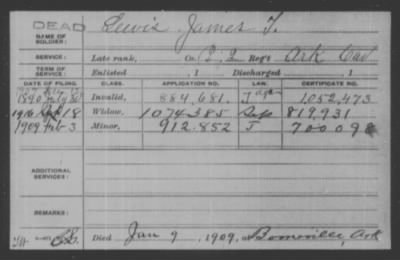 DEAD
NAME OF SOLDIER: Lewis James T.
SERVICE: Late rank, Co. B, 2 Reg't Ark Cav
TERM OF SERVICE: Enlisted , 1 Discharged , 1
DATE OF FILING. CLASS. APPLICATION NO. LAW. CERTIFICATE NO.
1890 July Invalid, 884,681. J 1,052,473
1916 18 Widow, 1074385 819,931
1909 Feb 3 Minor, 912.852 J
ADDITIONAL SERVICES:
REMARKS:
Died Jan 9, 1909, at Booneville, Ark